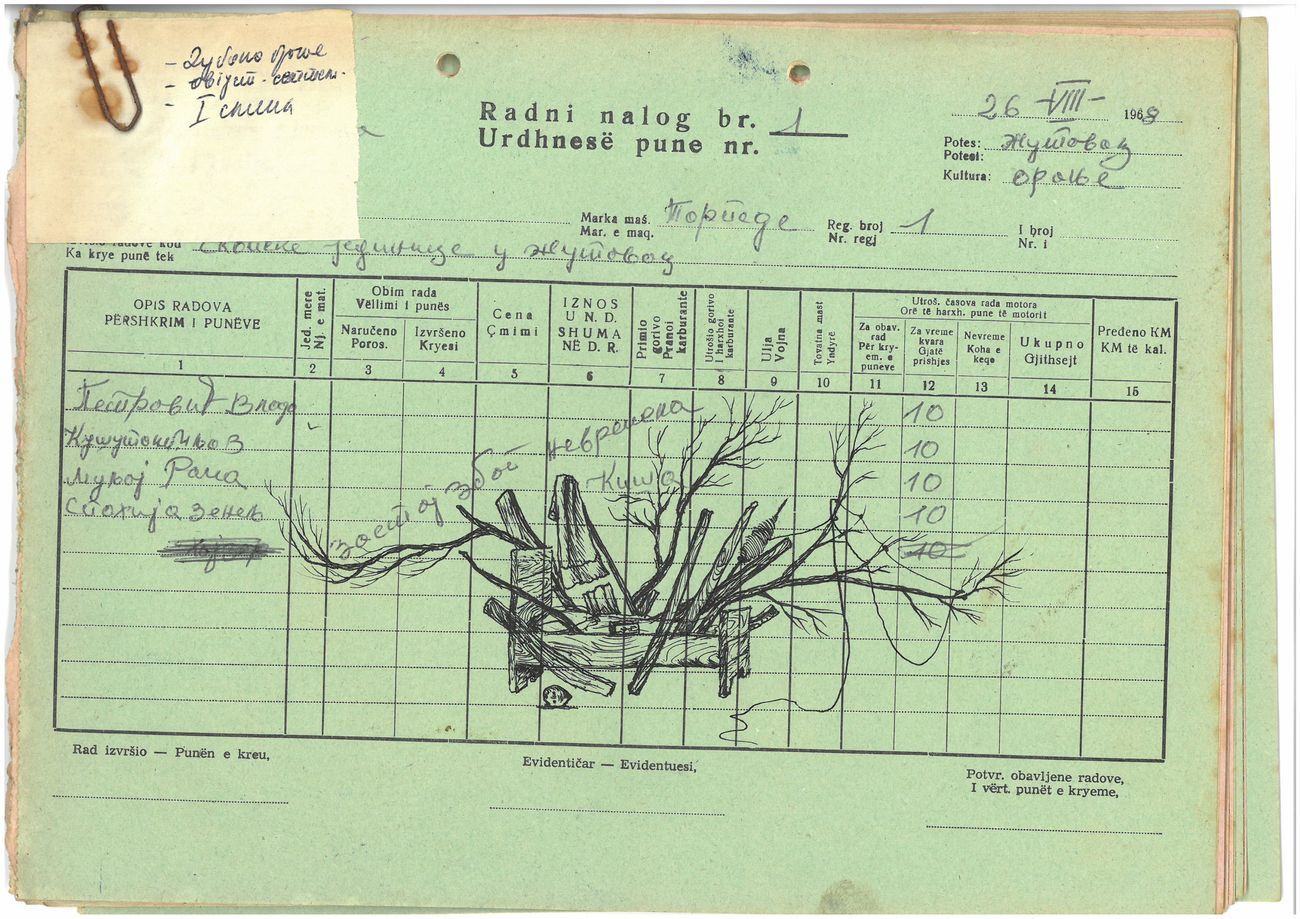 - Дубоко орање
- август - септем.
- I смена
Radni nalog br. 1
Urdhnesë pune nr.
26 -VIII- 1968
Potes: Жутовац
Potesi:
Kultura: орање
Marka maš. Торпедо
Mar. e maq.
Reg. broj 1
Nr. regj
I broj
Nr. i
Ka krye punë tek јединице у Жутовац
OPIS RADOVA
PËRSHKRIM I PUNËVE
Jed. mere
Nj. e mat.
Obim rada
Vëllimi i punës
Naručeno
Poros.
Izvršeno
Kryesi
Cena
Çmimi
IZNOS
U N. D.
SHUMA
NË D. R.
Primio gorivo
Pranoi karburante
Utrošio gorivo
I harxhoi karburante
Ulja
Vojna
Tovatna mast
Yndyrë
Utroš. časova rada motora
Orë të harxh. pune të motorit
Za obav. rad
Për kry-
em. e
puneve
Za vreme
kvara
Gjatë
prishjes
Nevreme
Koha e
keqe
Ukupno
Gjithsejt
Pređeno KM
KM të kal.
1 2 3 4 5 6 7 8 9 10 11 12 13 14 15
Петровић Владо 10
10
Муљај Рама 10
Спахија Зенељ 10
10
застој због невремена
Киша
Rad izvršio — Punën e kreu,
Evidentičar — Evidentuesi,
Potvr. obavljene radove,
I vërt. punët e kryeme,